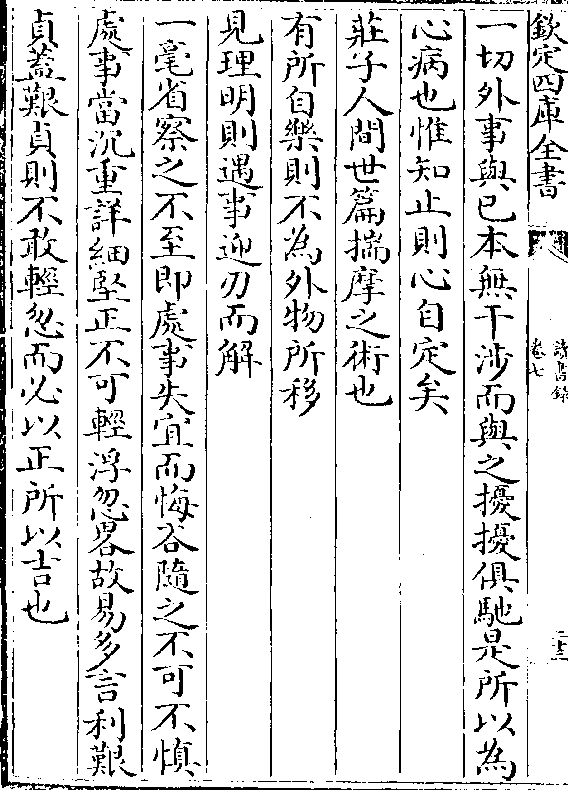 欽定四庫全書
讀書錄
卷七
一切外事與已本無干涉而與之擾擾俱馳是所以為
心病也惟知止則心自定矣
莊子人間世篇揣摩之術也
有所自樂則不為外物所移
見理明則遇事迎刃而解
一毫省察之不至即處事失宜而悔吝隨之不可不慎
處事當沉重詳細堅正不可輕浮忽畧故易多言利艱
貞葢艱貞則不敢輕忽而必以正所以吉也